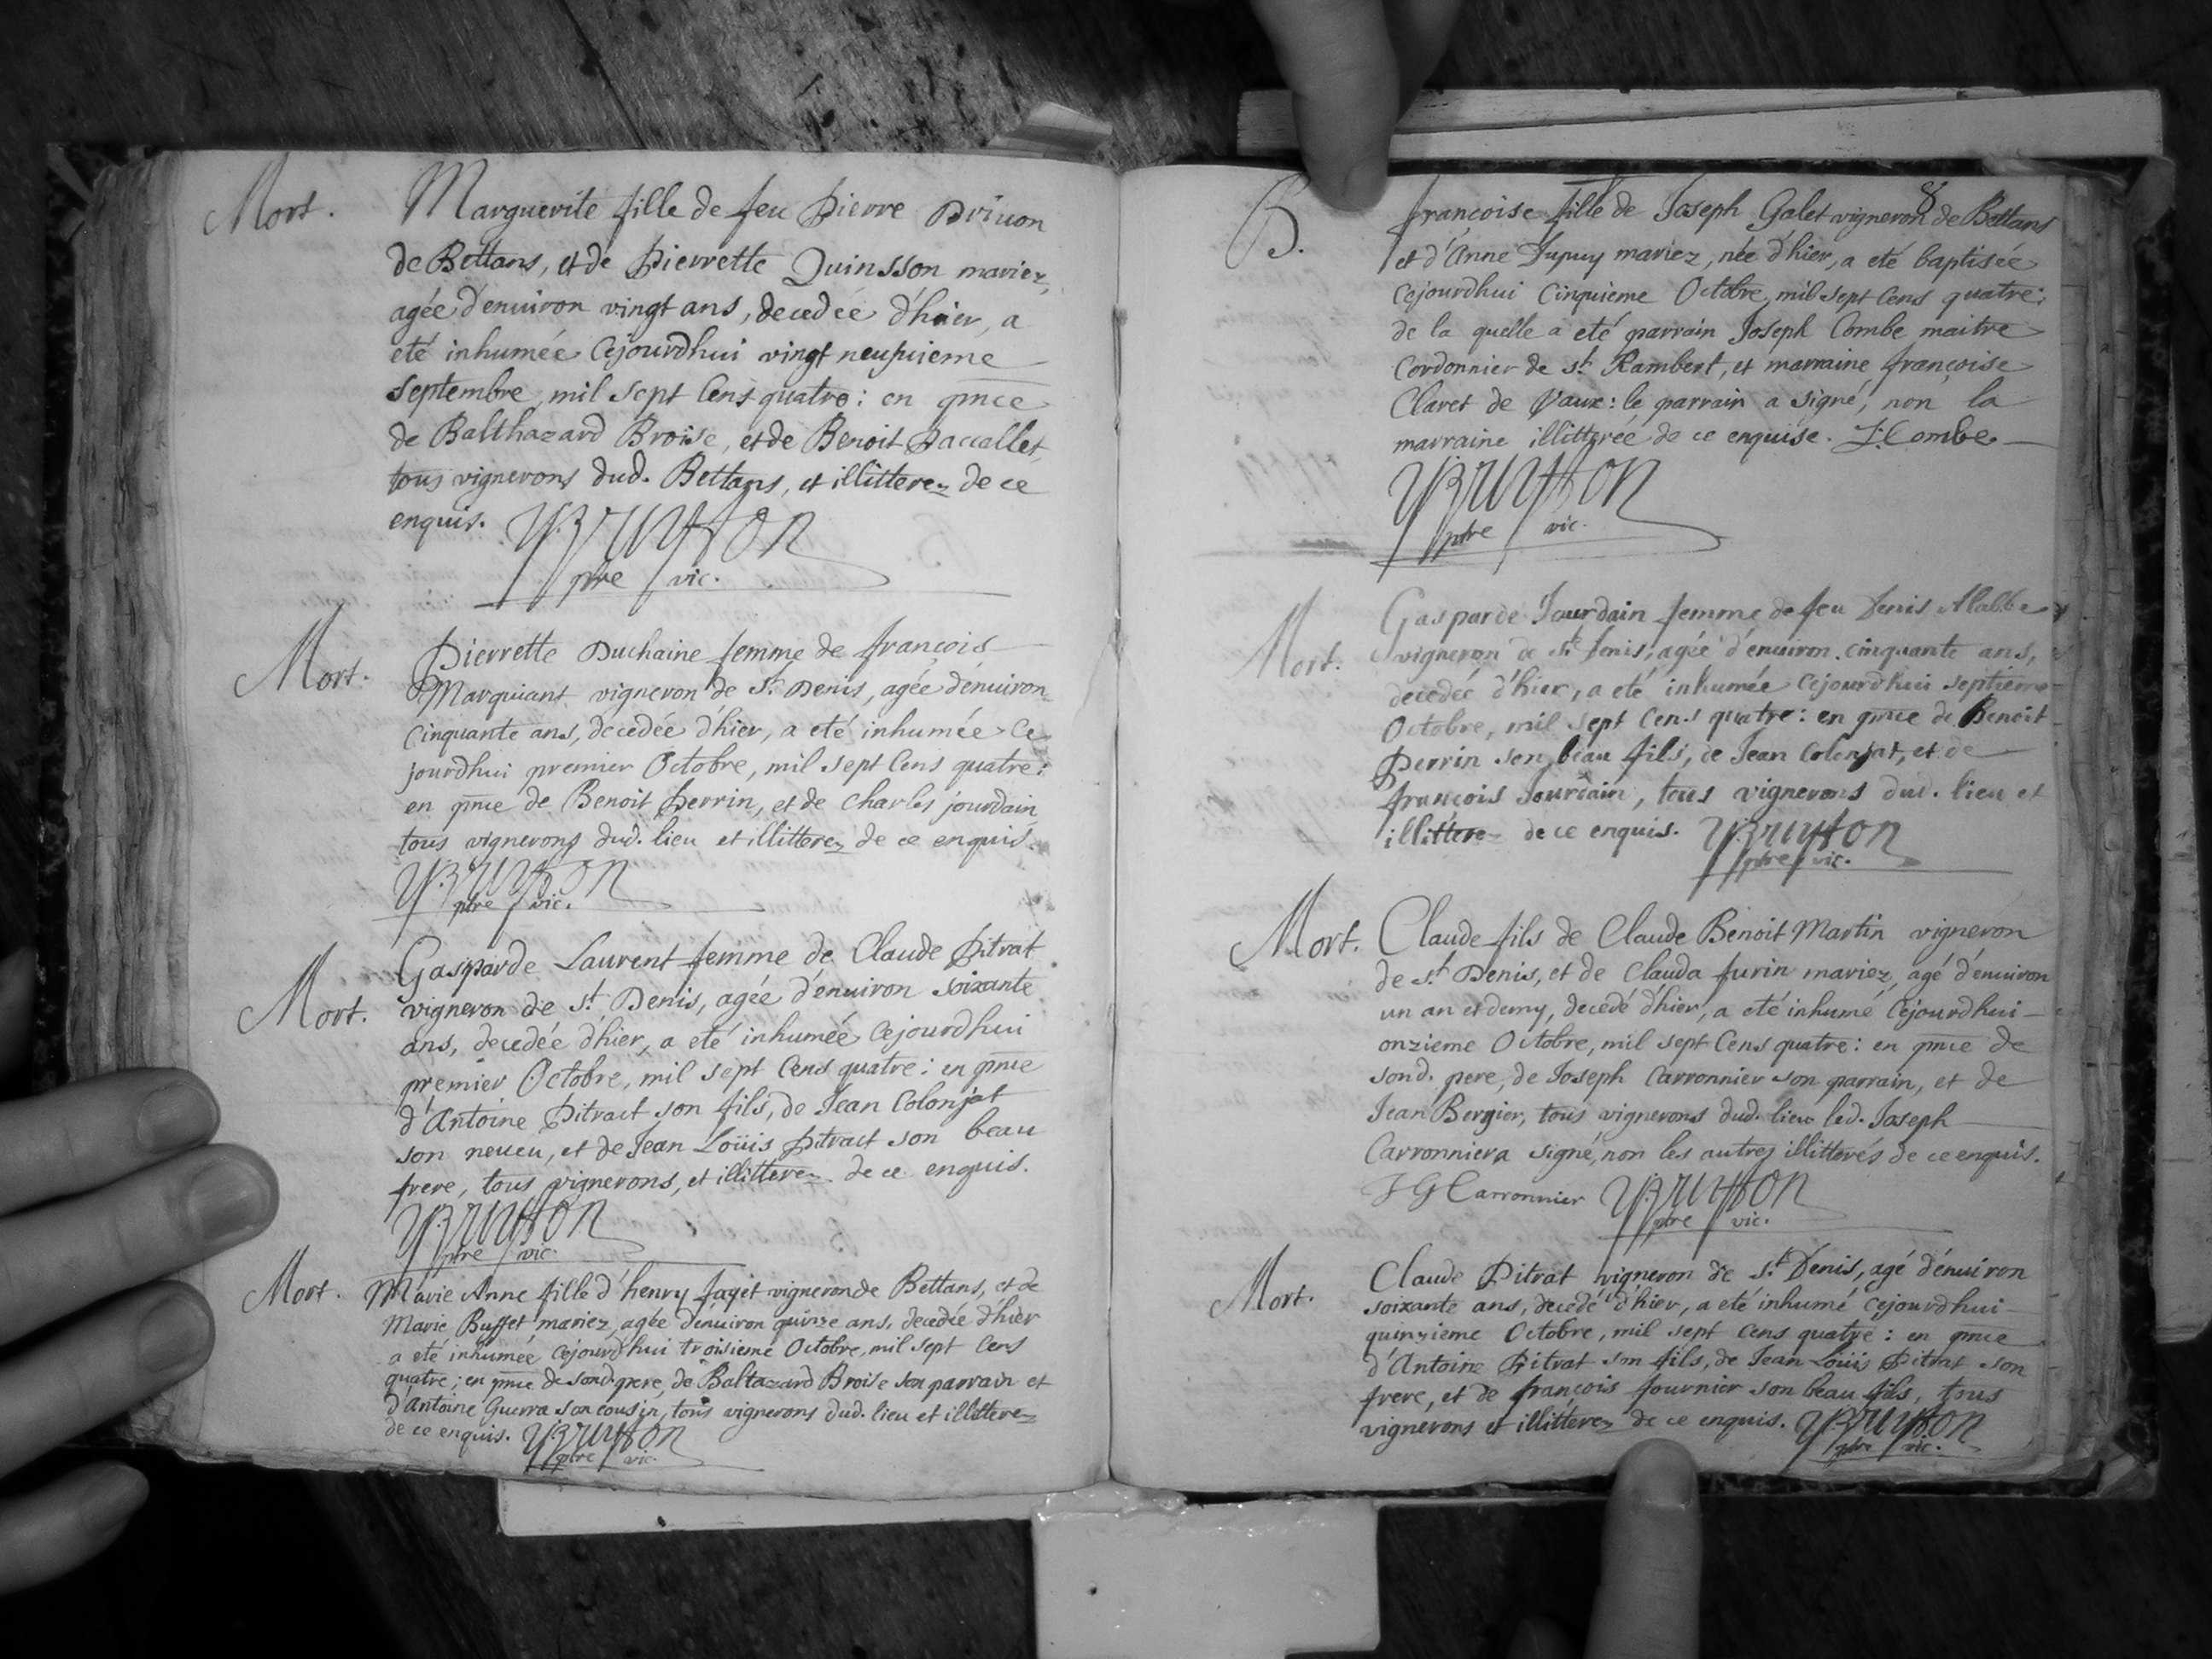 Mort.
Marguerite fille de feu Pierre Drivon
de Bettans, et de Pierrette Quinsson mariez,
agée d'enuiron vingt ans, decedée d'hier, a
eté inhumée cejourdhui vingt neufuieme
septembre, mil sept cens quatre: en pnce
de Balthazard Broise, et de Benoit Paccallet,
tous vignerons dud. Bettans, et illitterez de ce
enquis.
Bruyson
ptre vic.
Mort.
Pierrette Duchaine femme de françois
Marquiant vigneron de St Denis, agée d'enuiron
cinquante ans, decedée d'hier, a eté inhumée ce
jourdhui premier Octobre, mil sept cens quatre:
en pnce de Benoit Perrin, et de charles jourdain
tous vignerons dud. lieu et illitterez de ce enquis.
Bruyson
ptre vic.
Mort.
Gasparde Laurent femme de Claude Pitrat
vigneron de St Denis, agée d'enuiron soixante
ans, decedée d'hier, a eté inhumée cejourdhui
premier Octobre, mil sept cens quatre: en pnce
d'Antoine Pitract son fils, de Jean Colonjat
son neueu, et de Jean Loüis Pitract son beau
frere, tous vignerons, et illitterez de ce enquis.
Bruyson
ptre vic.
Mort.
Marie Anne fille d'henry fayet vigneron de Bettans, et de
Marie Buffet mariez, agée d'enuiron quinze ans, decedée d'hier
a eté inhumée cejourd'hui troisieme Octobre, mil sept cens
quatre; en pnce de sond. pere, de Baltazard Broise son parrain et
d'Antoine Guerra son cousin, tous vignerons dud. lieu et illitterez
de ce enquis. Bruyson
ptre vic.
8
B.
françoise fille de Joseph Galet vigneron de Bettans
et d'Anne Dupuy mariez, née d'hier, a eté baptisée
cejourdhui cinquieme Octobre, mil sept cens quatre:
de la quelle a eté parrain Joseph Combe maitre
cordonnier de st Rambert, et marraine françoise
Claret de Vaux: le parrain a signé, non la
marraine illitterée de ce enquise. J: Combe
Bruyson
ptre vic.
Mort.
Gasparde Jourdain femme de feu Denis Alabbe
vigneron de St Denis, agée d'enuiron cinquante ans,
decedée d'hier, a eté inhumée cejourdhui septieme
Octobre, mil sept cens quatre: en pnce de Benoit
Perrin son beau fils, de Jean Colonjat, et de
françois Jourdain, tous vignerons dud. lieu et
illitterez de ce enquis. Bruyson
ptre vic.
Mort.
Claude fils de Claude Benoit Martin vigneron
de St Denis, et de Clauda furin mariez, agé d'enuiron
un an et demy, decedé d'hier, a eté inhumé cejourdhui
onzieme Octobre, mil sept cens quatre: en pnce de
sond. pere, de Joseph Carronnier son parrain, et de
Jean Bergier, tous vignerons dud. lieu led. Joseph
Carronnier a signé, non les autres illitterés de ce enquis.
J G Carronnier Bruyson
ptre vic.
Mort.
Claude Pitrat vigneron de St Denis, agé d'enuiron
soixante ans, decedé d'hier, a eté inhumé cejourdhui
quinzieme Octobre, mil sept cens quatre: en pnce
d'Antoine Pitrat son fils, de Jean Loüis Pitrat son
frere, et de françois fournier son beau fils, tous
vignerons et illitterez de ce enquis. Bruyson
ptre vic.